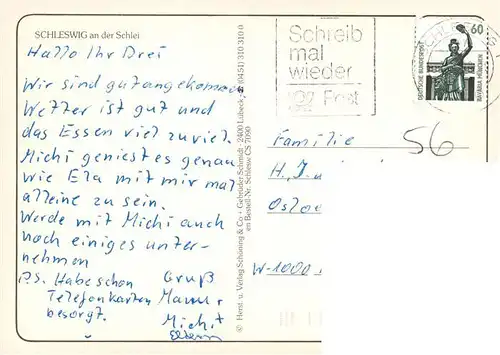 SCHLESWIG an der Schlei
Hallo Ihr Drei
Wir sind gut angekommen
Wetter ist gut und
das Essen viel zu viel.
Michi geniest es genau
wie Ela mit mir mal
alleine zu sein.
Werde mit Michi auch
noch einiges unter-
nehmen
P.S. Habe schon
Telefonkarten
besorgt.
Gruß
Mama +
Michi
Eltern
© Herst. u. Verlag Schöning & Co · Gebrüder Schmidt · 2400 Lübeck, (0451) 310 310 0
im Bestell-Nr. Schlesw CS 7090
Schreib
mal
wieder
Post
60
DEUTSCHE BUNDESPOST
BAVARIA MÜNCHEN
56
Familie
H. J.
Oslo
W-1000